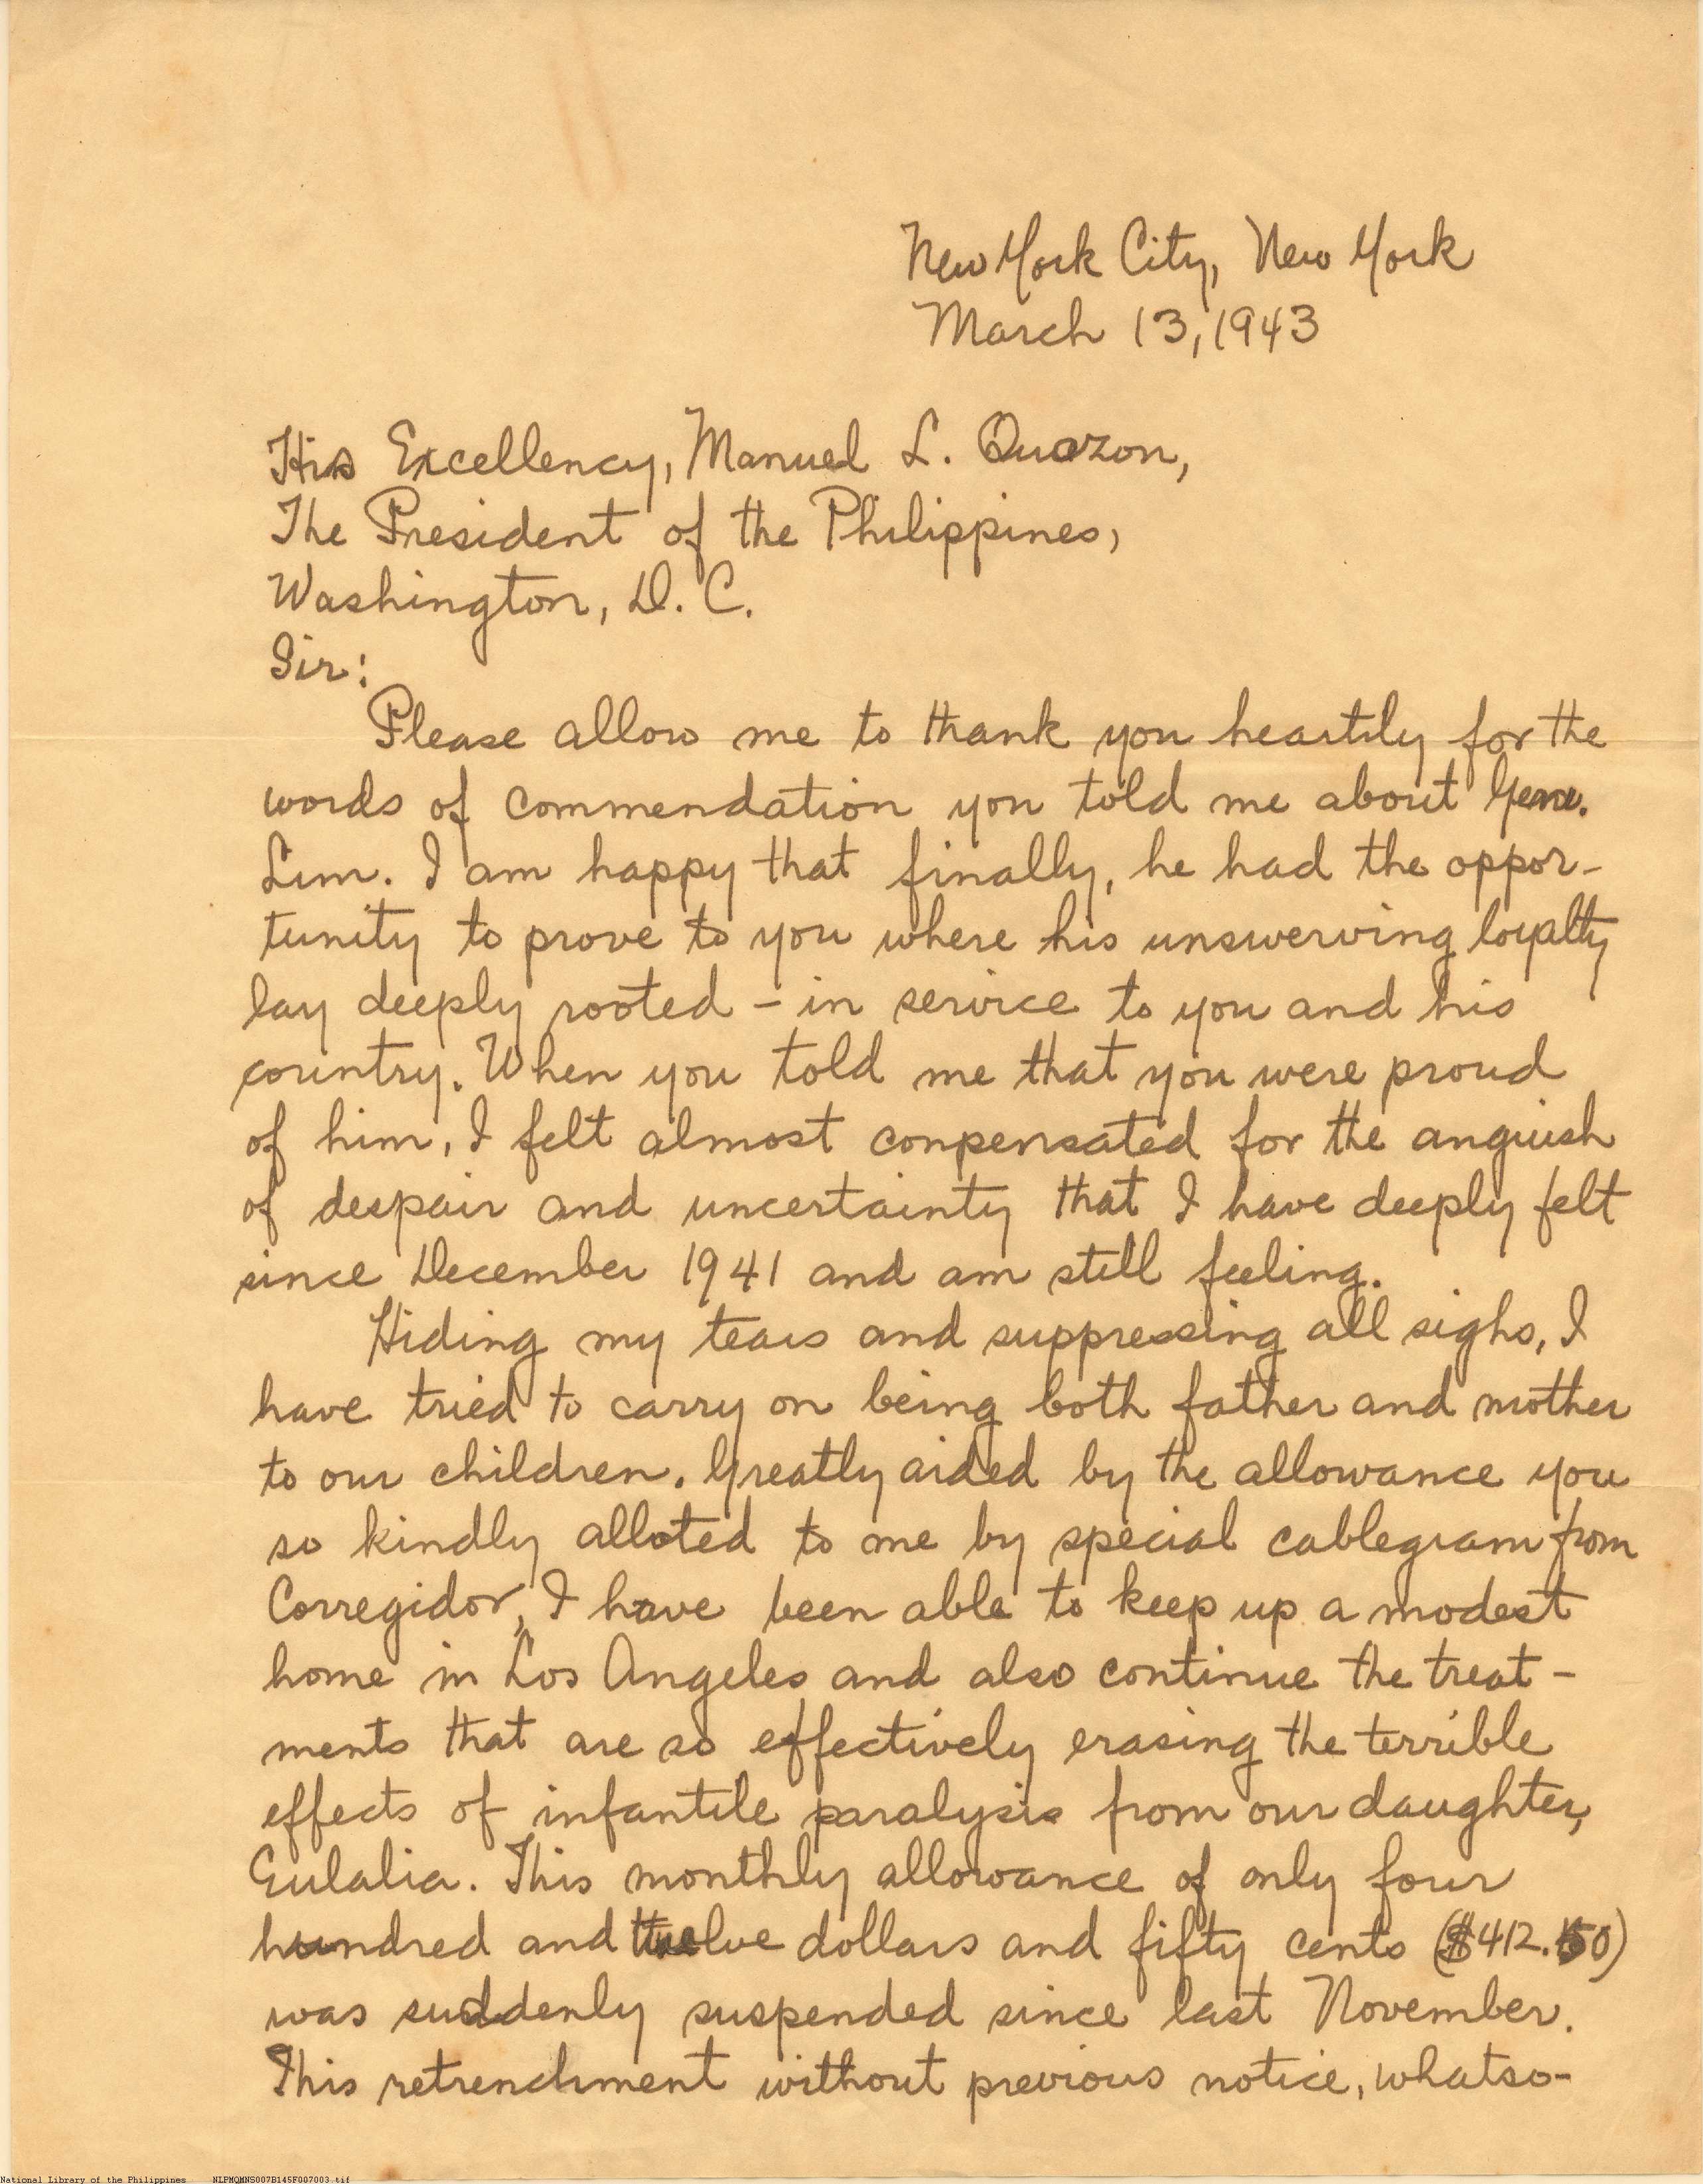 New York City, New York
March 13, 1943
His Excellency, Manuel L. Quezon,
The President of the Philippines,
Washington, D. C.
Sir:
Please allow me to thank you heartily for the
words of commendation you told me about Gen.
Lim. I am happy that finally, he had the oppor-
tunity to prove to you where his unswerving loyalty
lay deeply rooted - in service to you and his
country. When you told me that you were proud
of him, I felt almost conpensated for the anguish
of despair and uncertainty that I have deeply felt
since December 1941 and am still feeling.
Hiding my tears and suppressing all sighs, I
have tried to carry on being both father and mother
to our children. Greatly aided by the allowance you
so kindly alloted to me by special cablegram from
Corregidor, I have been able to keep up a modest
home in Los Angeles and also continue the treat-
ments that are so effectively erasing the terrible
effects of infantile paralysis from our daughter,
Eulalia. This monthly allowance of only four
hundred and twelve dollars and fifty cents ($412.50)
was suddenly suspended since last November.
This retrenchment without previous notice, whatso-
National Library of the Philippines NLPMQMNS007B145F007003.tif